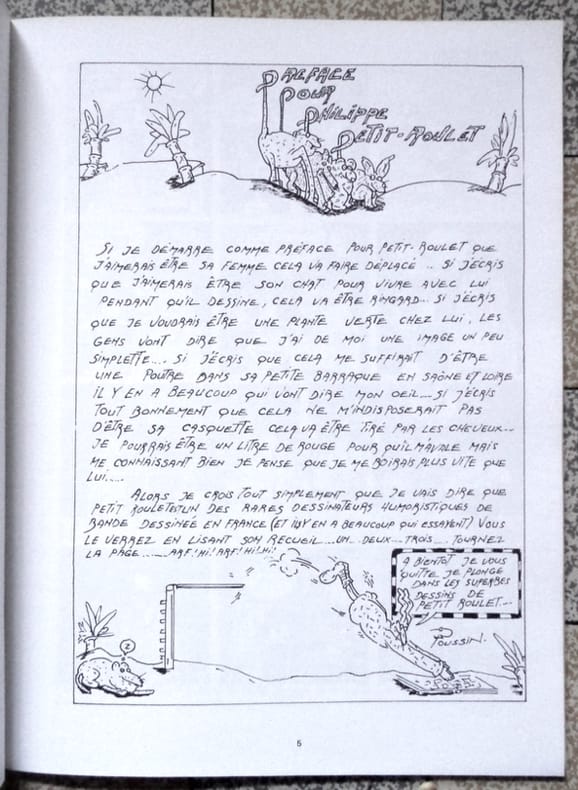 PREFACE
POUR
PHILIPPE
PETIT-ROULET
SI JE DÉMARRE COMME PRÉFACE POUR PETIT-ROULET QUE
J'AIMERAIS ÊTRE SA FEMME CELA VA FAIRE DÉPLACÉ .. SI J'ÉCRIS
QUE J'AIMERAIS ÊTRE SON CHAT POUR VIVRE AVEC LUI
PENDANT QU'IL DESSINE, CELA VA ÊTRE RINGARD... SI J'ÉCRIS
QUE JE VOUDRAIS ÊTRE UNE PLANTE VERTE CHEZ LUI, LES
GENS VONT DIRE QUE J'AI DE MOI UNE IMAGE UN PEU
SIMPLETTE.... SI J'ÉCRIS QUE CELA ME SUFFIRAIT D'ÊTRE
UNE POUTRE DANS SA PETITE BARRAQUE EN SAÔNE ET LOIRE
IL Y EN A BEAUCOUP QUI VONT DIRE MON OEIL.... SI J'ÉCRIS
TOUT BONNEMENT QUE CELA NE M'INDISPOSERAIT PAS
D'ÊTRE SA CASQUETTE CELA VA ÊTRE TIRÉ PAR LES CHEVEUX...
JE POURRAIS ÊTRE UN LITRE DE ROUGE POUR QU'IL M'AVALE MAIS
ME CONNAISSANT BIEN JE PENSE QUE JE ME BOIRAIS PLUS VITE QUE
LUI....
ALORS JE CROIS TOUT SIMPLEMENT QUE JE VAIS DIRE QUE
PETIT ROULET EST UN DES RARES DESSINATEURS HUMORISTIQUES DE
BANDE DESSINÉE EN FRANCE (ET IL Y EN A BEAUCOUP QUI ESSAYENT) VOUS
LE VERREZ EN LISANT SON RECUEIL... UN.. DEUX... TROIS.... TOURNEZ
LA PAGE....... ARF! HI! ARF! HI! HI!
A BIENTÔT JE VOUS
QUITTE JE PLONGE
DANS LES SUPERBES
DESSINS DE
PETIT ROULET...
Poussin.
Z
5